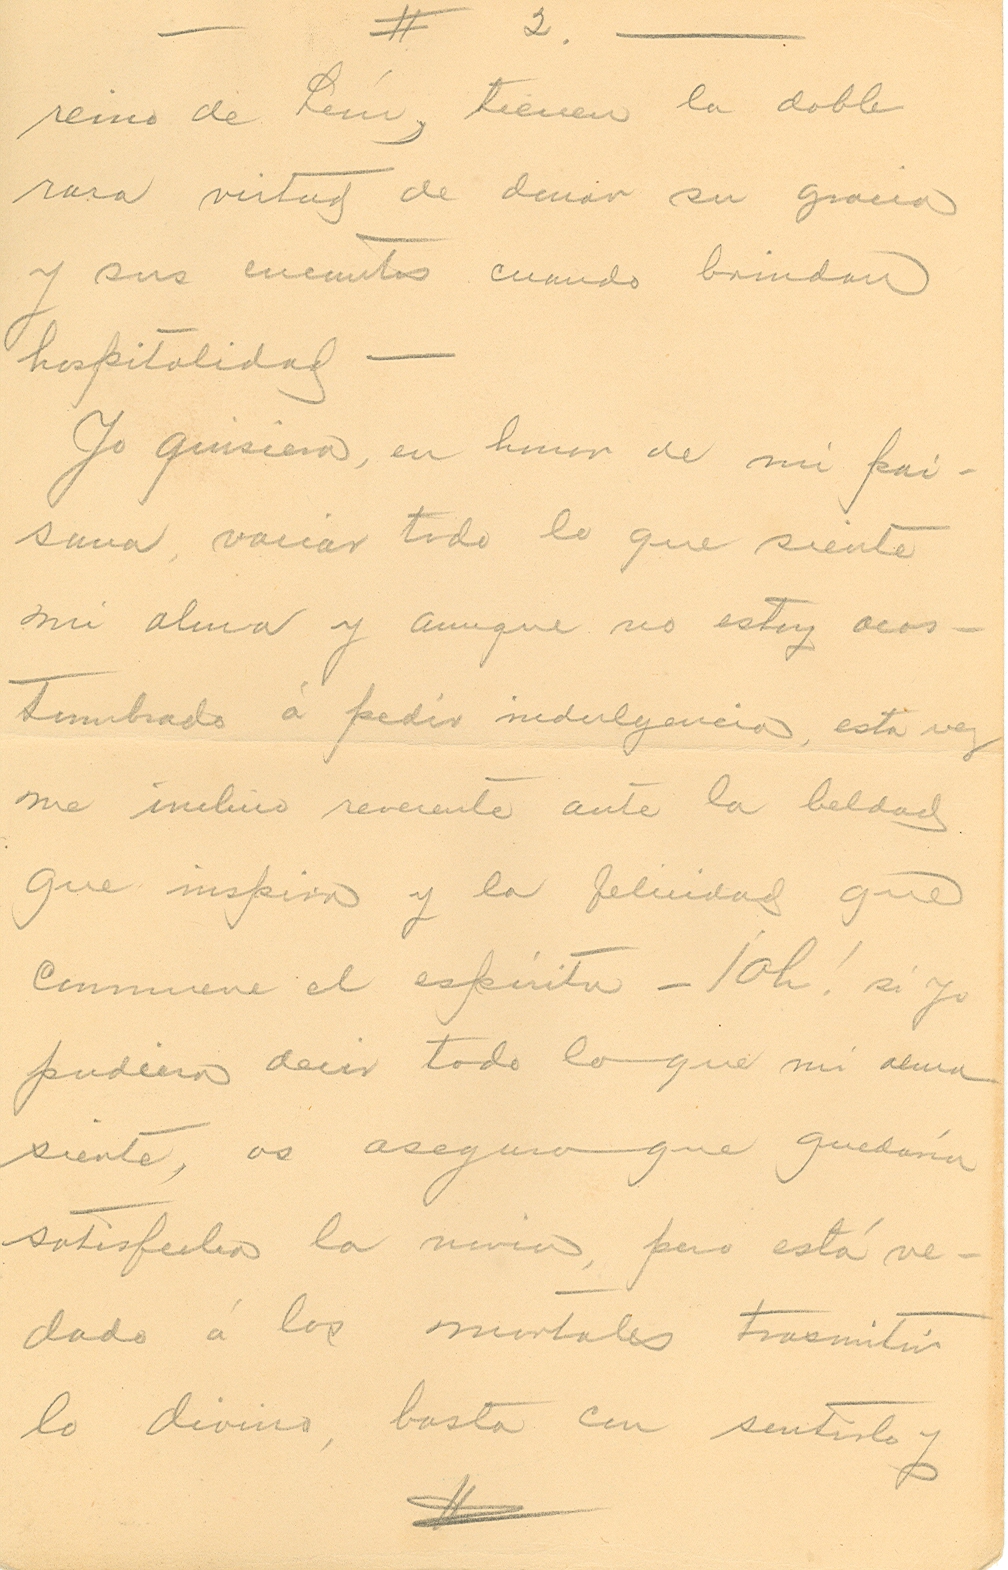 — # 2. —
reino de León, tienen la doble
rara virtud de donar su gracia
y sus encantos cuando brindan
hospitalidad —
Yo quisiera, en honor de mi pai-
sana, vaciar todo lo que siente
mi alma y aunque no estoy acos-
tumbrado á pedir indulgencia, esta vez
me inclino reverente ante la beldad
que inspira y la felicidad que
conmueve el espíritu — ¡Oh! si yo
pudiera decir todo lo que mi alma
siente, os aseguro que quedaría
satisfecha la novia, pero está ve-
dado á los mortales trasmitir
lo divino, basta con sentirlo y
#